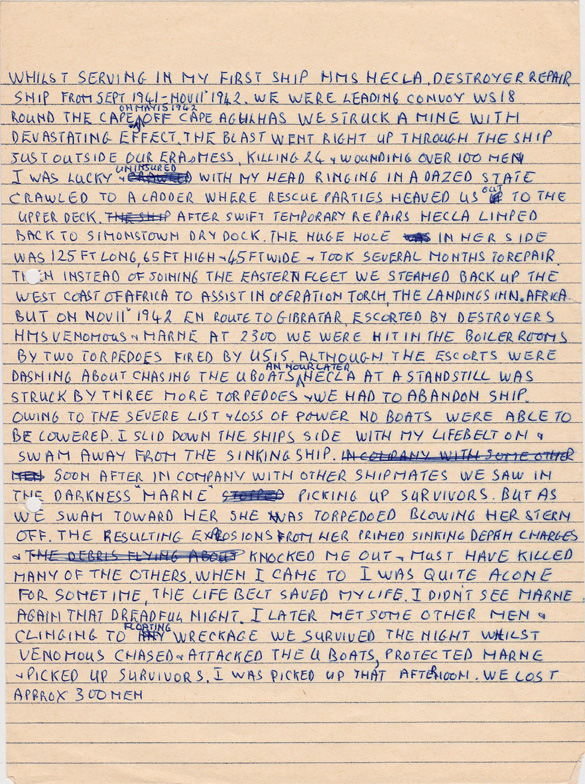 WHILST SERVING IN MY FIRST SHIP HMS HECLA, DESTROYER REPAIR
SHIP FROM SEPT 1941-NOV 11" 1942. WE WERE LEADING CONVOY WS18
ON MAY 15 1942
ROUND THE CAPE OFF CAPE AGULHAS WE STRUCK A MINE WITH
DEVASTATING EFFECT. THE BLAST WENT RIGHT UP THROUGH THE SHIP
JUST OUTSIDE OUR ERA'S MESS, KILLING 24 & WOUNDING OVER 100 MEN
UNINJURED
I WAS LUCKY & CRAWLED WITH MY HEAD RINGING IN A DAZED STATE
CRAWLED TO A LADDER WHERE RESCUE PARTIES HEAVED US OUT TO THE
UPPER DECK. THE SHIP AFTER SWIFT TEMPORARY REPAIRS HECLA LIMPED
BACK TO SIMONSTOWN DRY DOCK. THE HUGE HOLE WAS IN HER SIDE
WAS 125 FT LONG, 65 FT HIGH & 45 FT WIDE & TOOK SEVERAL MONTHS TO REPAIR.
INSTEAD OF JOINING THE EASTERN FLEET WE STEAMED BACK UP THE
WEST COAST OF AFRICA TO ASSIST IN OPERATION TORCH, THE LANDINGS IN N. AFRICA.
BUT ON NOV 11" 1942 EN ROUTE TO GIBRATAR, ESCORTED BY DESTROYERS
HMS VENOMOUS & MARNE AT 2300 WE WERE HIT IN THE BOILER ROOMS
BY TWO TORPEDOES FIRED BY U515. ALTHOUGH THE ESCORTS WERE
AN HOUR LATER
DASHING ABOUT CHASING THE U BOATS HECLA AT A STANDSTILL WAS
STRUCK BY THREE MORE TORPEDOES & WE HAD TO ABANDON SHIP.
OWING TO THE SEVERE LIST & LOSS OF POWER NO BOATS WERE ABLE TO
BE LOWERED. I SLID DOWN THE SHIPS SIDE WITH MY LIFEBELT ON &
SWAM AWAY FROM THE SINKING SHIP. IN COMPANY WITH SOME OTHER
MEN SOON AFTER IN COMPANY WITH OTHER SHIPMATES WE SAW IN
THE DARKNESS "MARNE" STOPPED PICKING UP SURVIVORS. BUT AS
WE SWAM TOWARD HER SHE WAS TORPEDOED BLOWING HER STERN
OFF. THE RESULTING EXPLOSIONS FROM HER PRIMED SINKING DEPTH CHARGES
& THE DEBRIS FLYING ABOUT KNOCKED ME OUT & MUST HAVE KILLED
MANY OF THE OTHERS. WHEN I CAME TO I WAS QUITE ALONE
FOR SOMETIME, THE LIFE BELT SAVED MY LIFE. I DIDN'T SEE MARNE
AGAIN THAT DREADFUL NIGHT. I LATER MET SOME OTHER MEN &
FLOATING
CLINGING TO ANY WRECKAGE WE SURVIVED THE NIGHT WHILST
VENOMOUS CHASED & ATTACKED THE U BOATS, PROTECTED MARNE
& PICKED UP SURVIVORS. I WAS PICKED UP THAT AFTERNOON. WE LOST
APRROX 300 MEN